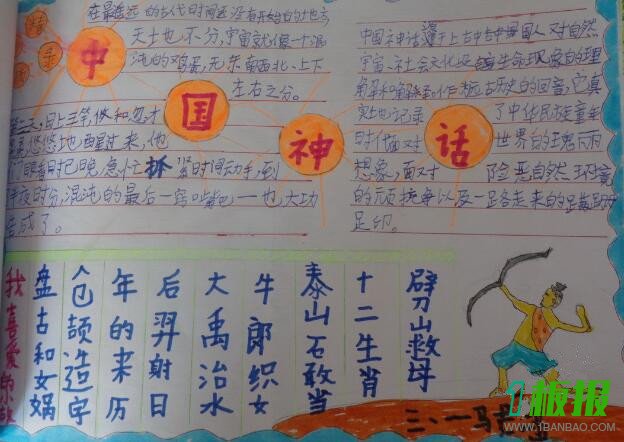 中国神话
在最遥远的古代时间还没有开始的地方
天土也不分,宇宙就像一个混
沌的鸡蛋,无东南西北、上下
左右之分。
悠悠地醒过来,他
紧时间动手,到
半夜时分,混沌的最后一窍
大功
告成了。
中国神话源于上古中古中国人对自然
宇宙、社会文化及
生命现象的理
远古历史的回音,它真
实地记录了中华民族童年
时代面对世界的
想象,面对险恶自然环境
的顽抗争以及一路走来的
足印。
我喜爱的故
盘古和女娲
仓颉造字
年的来历
后羿射日
大禹治水
牛郎织女
泰山石敢当
十二生肖
劈山救母
三、一马
板报
WWW.1BANBAO.COM